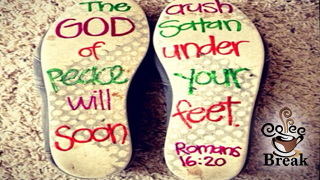 The
GOD
of
Peace
will
soon
crush
Satan
under
your
feet.
Romans
16:20
Coffee
Break